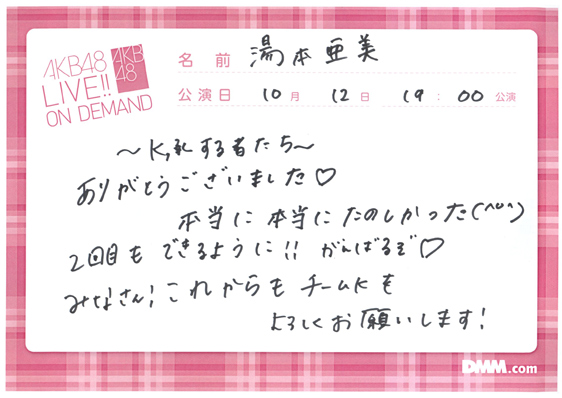 AKB48
LIVE!!
ON DEMAND
AKB
48
名前 湯本亜美
公演日 10月 12日 19:00公演
〜K、礼する者たち〜
ありがとうございました♡
本当に本当にたのしかった(^o^)
2回目もできるように!! がんばるぞ♡
みなさん!これからもチームKを
よろしくお願いします!
DMM.com